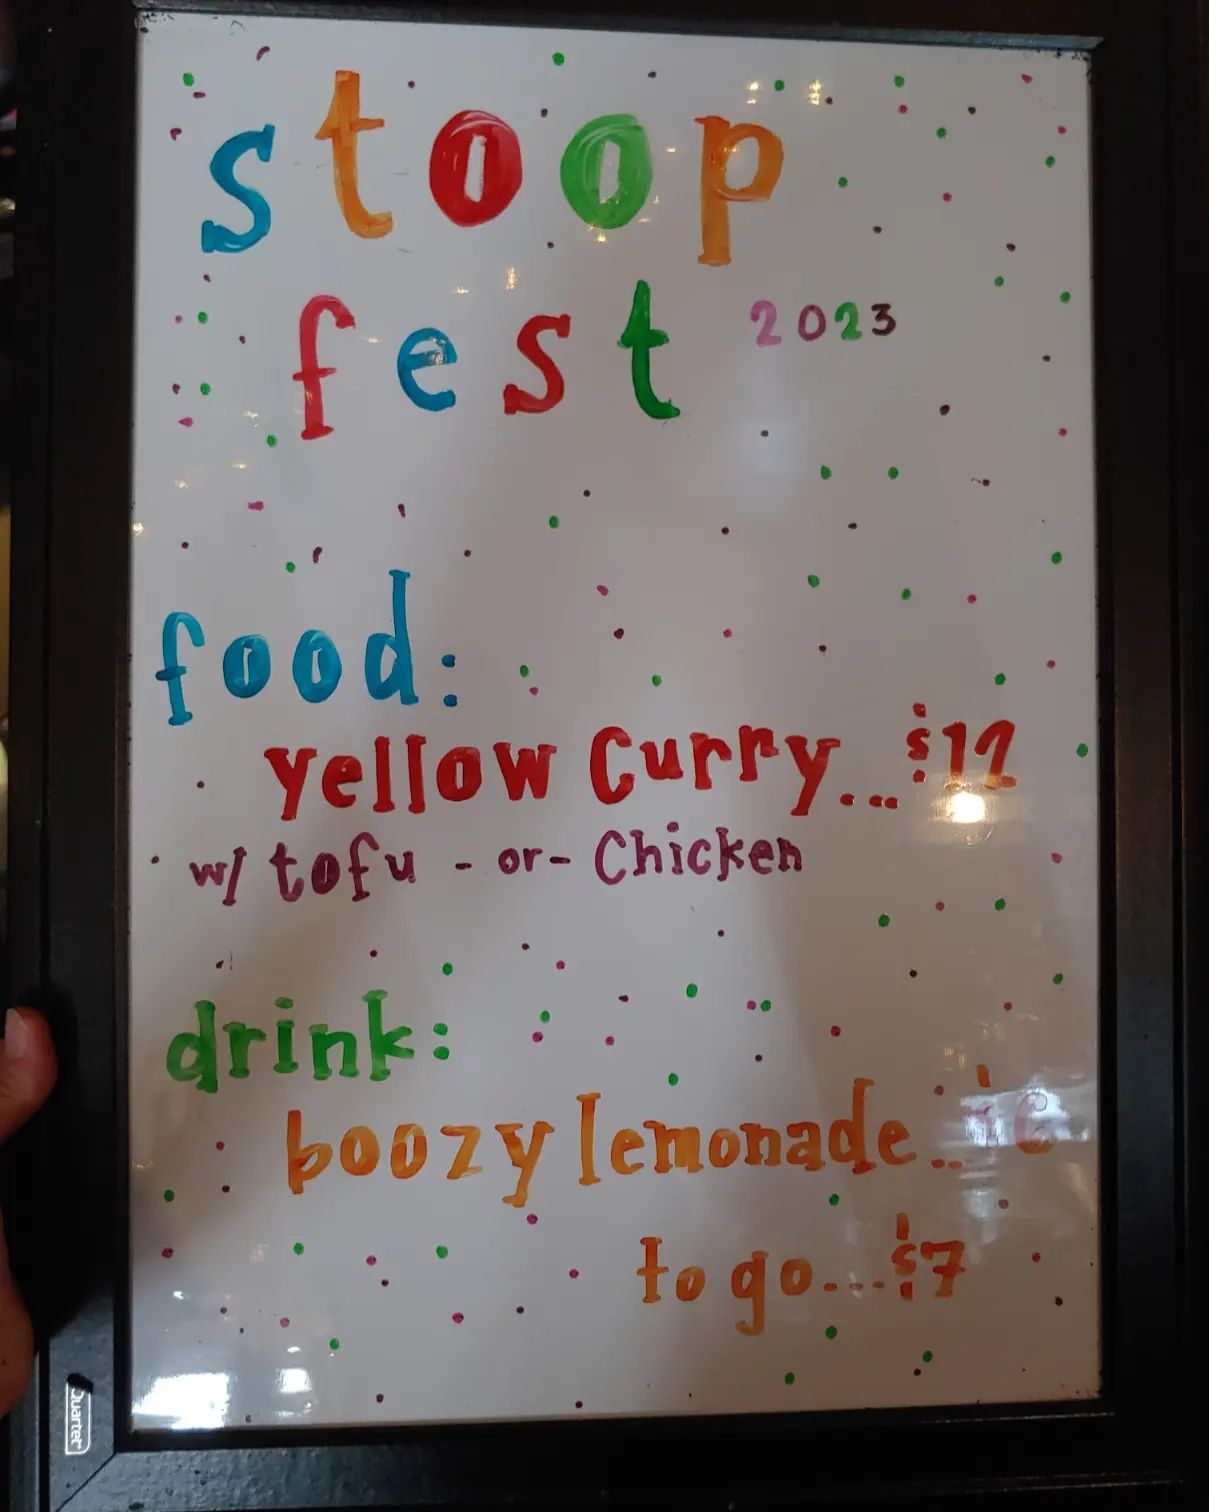 stoop
fest 2023
food:
yellow Curry...$12
w/ tofu - or - Chicken
drink:
boozy lemonade...$6
to go...$7
Quartet